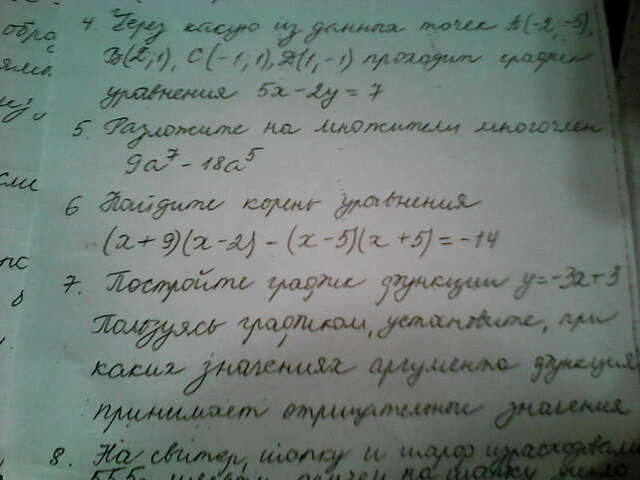 обра
4. Через какую из данных точек A(-2, -5),
B(2,1), C(-1,1), D(1,-1) проходит график
уравнения 5x-2y=7
5. Разложите на множители многочлен
9a⁷ - 18a⁵
6 Найдите корень уравнения
(x+9)(x-2) - (x-5)(x+5) = -14
7. Постройте график функции y=-3x+3
Пользуясь графиком, установите, при
каких значениях аргумента функция
принимает отрицательные значения
8. На свитер, шапку и шарф израсходовали
555